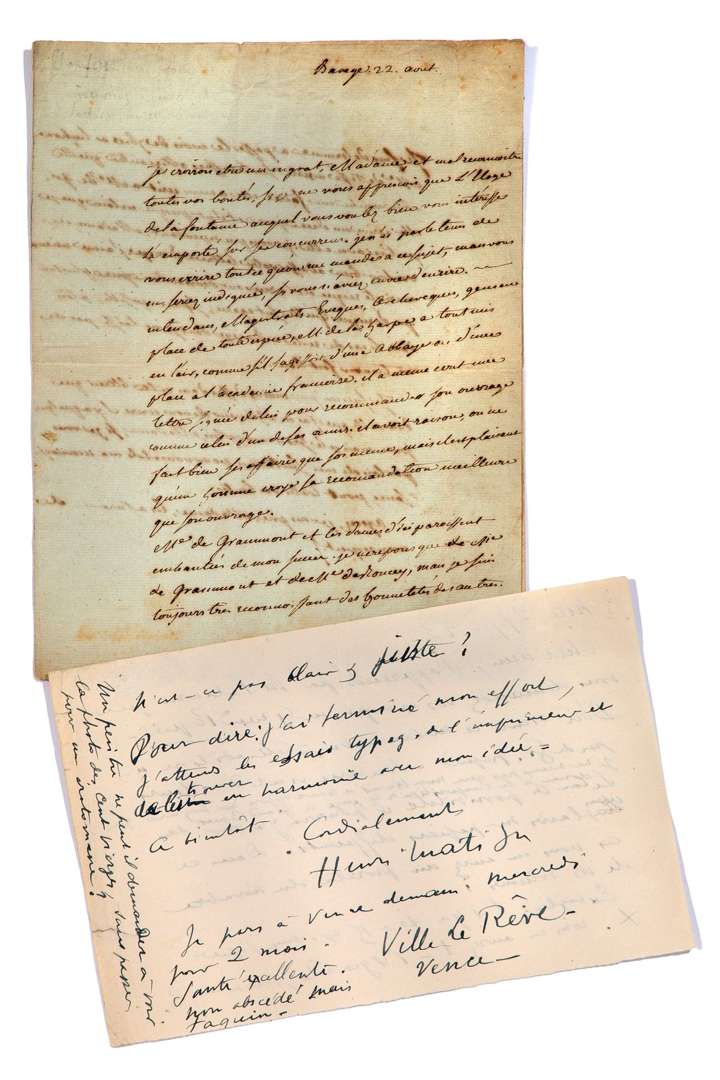 Barege. 22. aout.
je croirois etre un ingrat, Madame, et mal reconnoitre
toutes vos bontés, si je ne vous apprenois que L'Eloge
de la fontaine auquel vous voulez bien vous intéresser
a emporté sur ses concurrens. je n'ai pas le tems de
vous ecrire tout ce qu'on me mande a ce sujet, mais vous
en seriez indignée, si vous n'aviez envie d'en rire.
intendans, Magistrats Eveques, Archeveques, gens en
place de toute espece, M. de la harpe a tout mis
en l'air, comme s'il s'agissoit d'une abbaye ou d'une
place a l'academie françoise. il a meme ecrit une
lettre signée de lui pour recommander son ouvrage
comme celui d'un de ses amis. il avoit raison, on ne
fait bien ses affaires que soi meme, mais il est plaisant
qu'un homme croye sa recomandation meilleure
que son ouvrage.
Me. de Grammont et les dames d'ici paroissent
enchantées de mon succès. je ne repons que de Me
de Grammont et de Me. , mais je suis
toujours tres reconnoissant des honnetetés des autres.
n'est-ce pas clair & juste ?
Pour dire: j'ai terminé mon effort,
j'attends les essais typog. de l'imprimeur et
trouver
en harmonie avec mon idée. =
A bientôt
Cordialement
Henri Matisse
Je pars à Vence demain mercredi
pour 2 mois.
Santé exallente.
non obscédé mais
taquin -
Ville Le Rêve -
Vence -
Un peintre ne peut il demander à voir
la photo des cent vierges sans passer
pour un érotomane ?